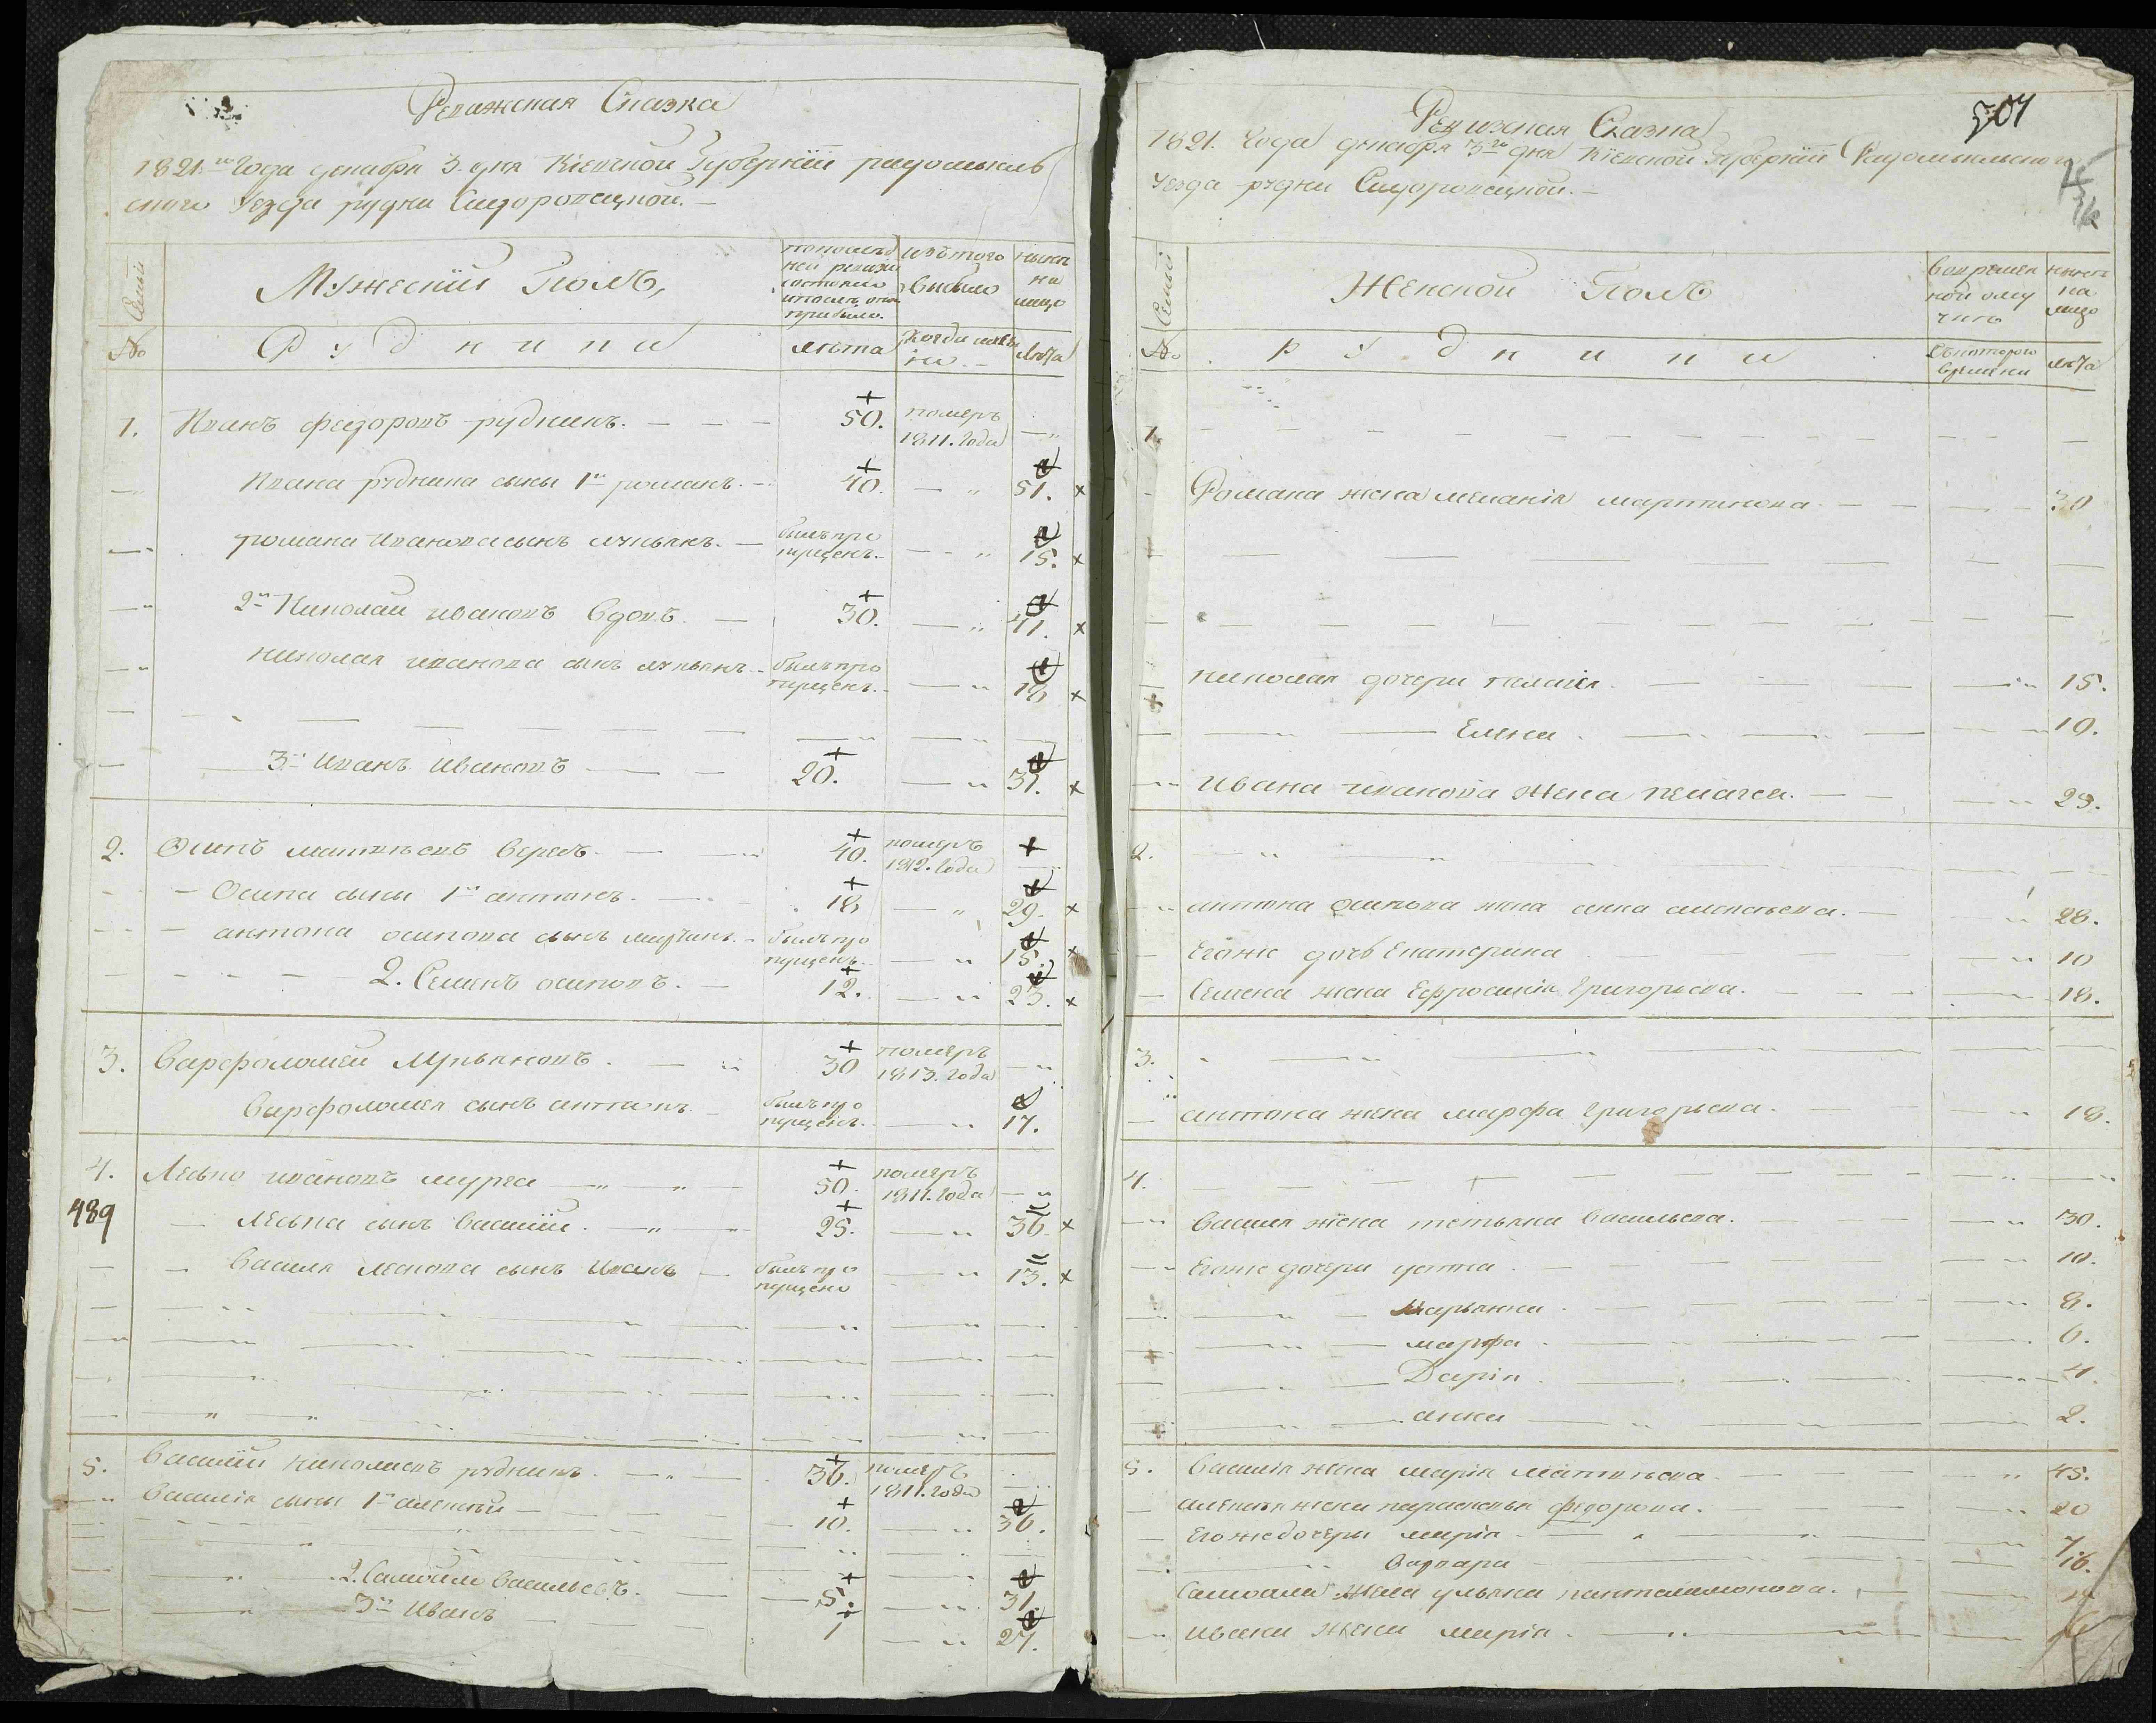 Ревижская Сказка
1821.го Года декабря 3. дня Кіевской Губерніи радомысль
ского Уезда рудни Сидоровецкой. —
Семьи
Мужескій Полъ,
по послѣд
ней ревизіи
состояло
и послѣ оной
прибыло.
изъ того
выбыло
нынѣ
на
лицо
№
Рудники
лѣта
Когда имян
но. —
лѣта
1. Иванъ федоровъ рудникъ. — 50. померъ 1811. Года —
Ивана рудника сыны 1й романъ. — 40. — 51. х
романа иванова сынъ лукьянъ. — былъ про пущенъ. — 15. х
2й Николай ивановъ вдовъ. — 30. — 41. х
николая иванова сынъ лукьянъ. — былъ про пущенъ. — 18 х
3й Иванъ Ивановъ — 20. — 31. х
2. Осипъ матвѣевъ — 40. померъ 1812. Года —
— Осипа сыны 1й антонъ. — 18 — 29. х
— антона осипова сынъ — былъ про пущенъ. — 15. х
2. Семенъ осиповъ. — 12. — 23. х
3. Варфоломей Лукьяновъ. — 30 померъ 1813. Года —
Варфоломея сынъ антонъ — былъ про пущенъ. — 17.
4. Леонъ ивановъ — 50. померъ 1811. Года —
489
— сынъ василій. — 25. — 36 х
— Василя сынъ Иванъ — былъ про пущено — 13. х
5. Василий николаевъ рудникъ. — 36. померъ 1811. Года —
Василія сыны 1й алексѣй — 10. — 36.
2. Самойло Васильевъ. — 5. — 31.
3й Иванъ — 1 — 27.
Ревижская Сказка
507
1821. Года декабря 3го дня Кіевской Губерніи Радомысльского
Уезда рудни Сидоровецкой. —
Семьи
Женской Полъ
Вовремен
ной отлу
чкѣ
нынѣ
на
лицо
№
Рудники
Съкоторого
времени
лѣта
1.
Романа жена меланія мартинова. — 30
николая дочери — 15.
— Елена. — 10.
Ивана иванова жена пелагея. — 29.
2.
антона осипова жена анна алексѣева. — 28.
Егоже дочь Екатерина — 10
Семена жена Ефросинія Григорьева. — 18.
3.
антона жена марфа григорьева. — 18.
4.
василя жена татьяна васильева. — 30.
Егоже дочери — 10.
— Марьянна. — 8.
— марфа. — 6.
— Дарія. — 4.
— анна — 2.
5. Василія жена марія матвѣева. — 45.
алексѣя жена параскевья федорова. — 20
Егоже дочеры марія. — 7.
— Варвара — 16.
Самоила жена ульяна пантелимонова. —
Ивана жена марія. —